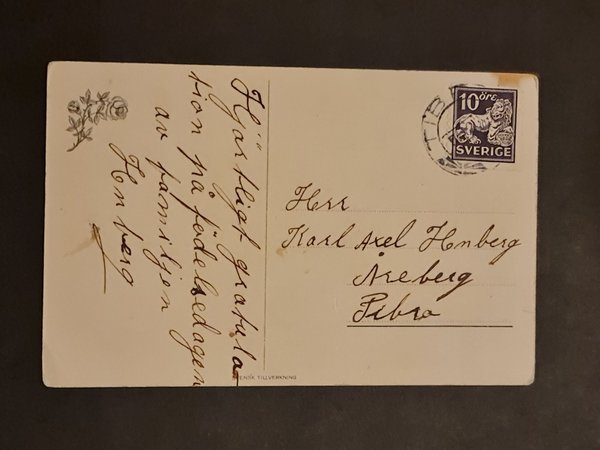 Hjärtligt gratula
tion på födelsedagen
av familjen
Henberg
10 öre
SVERIGE
Herr
Karl Axel Henberg
Åreberg
Tibro
ENSK TILLVERKNING